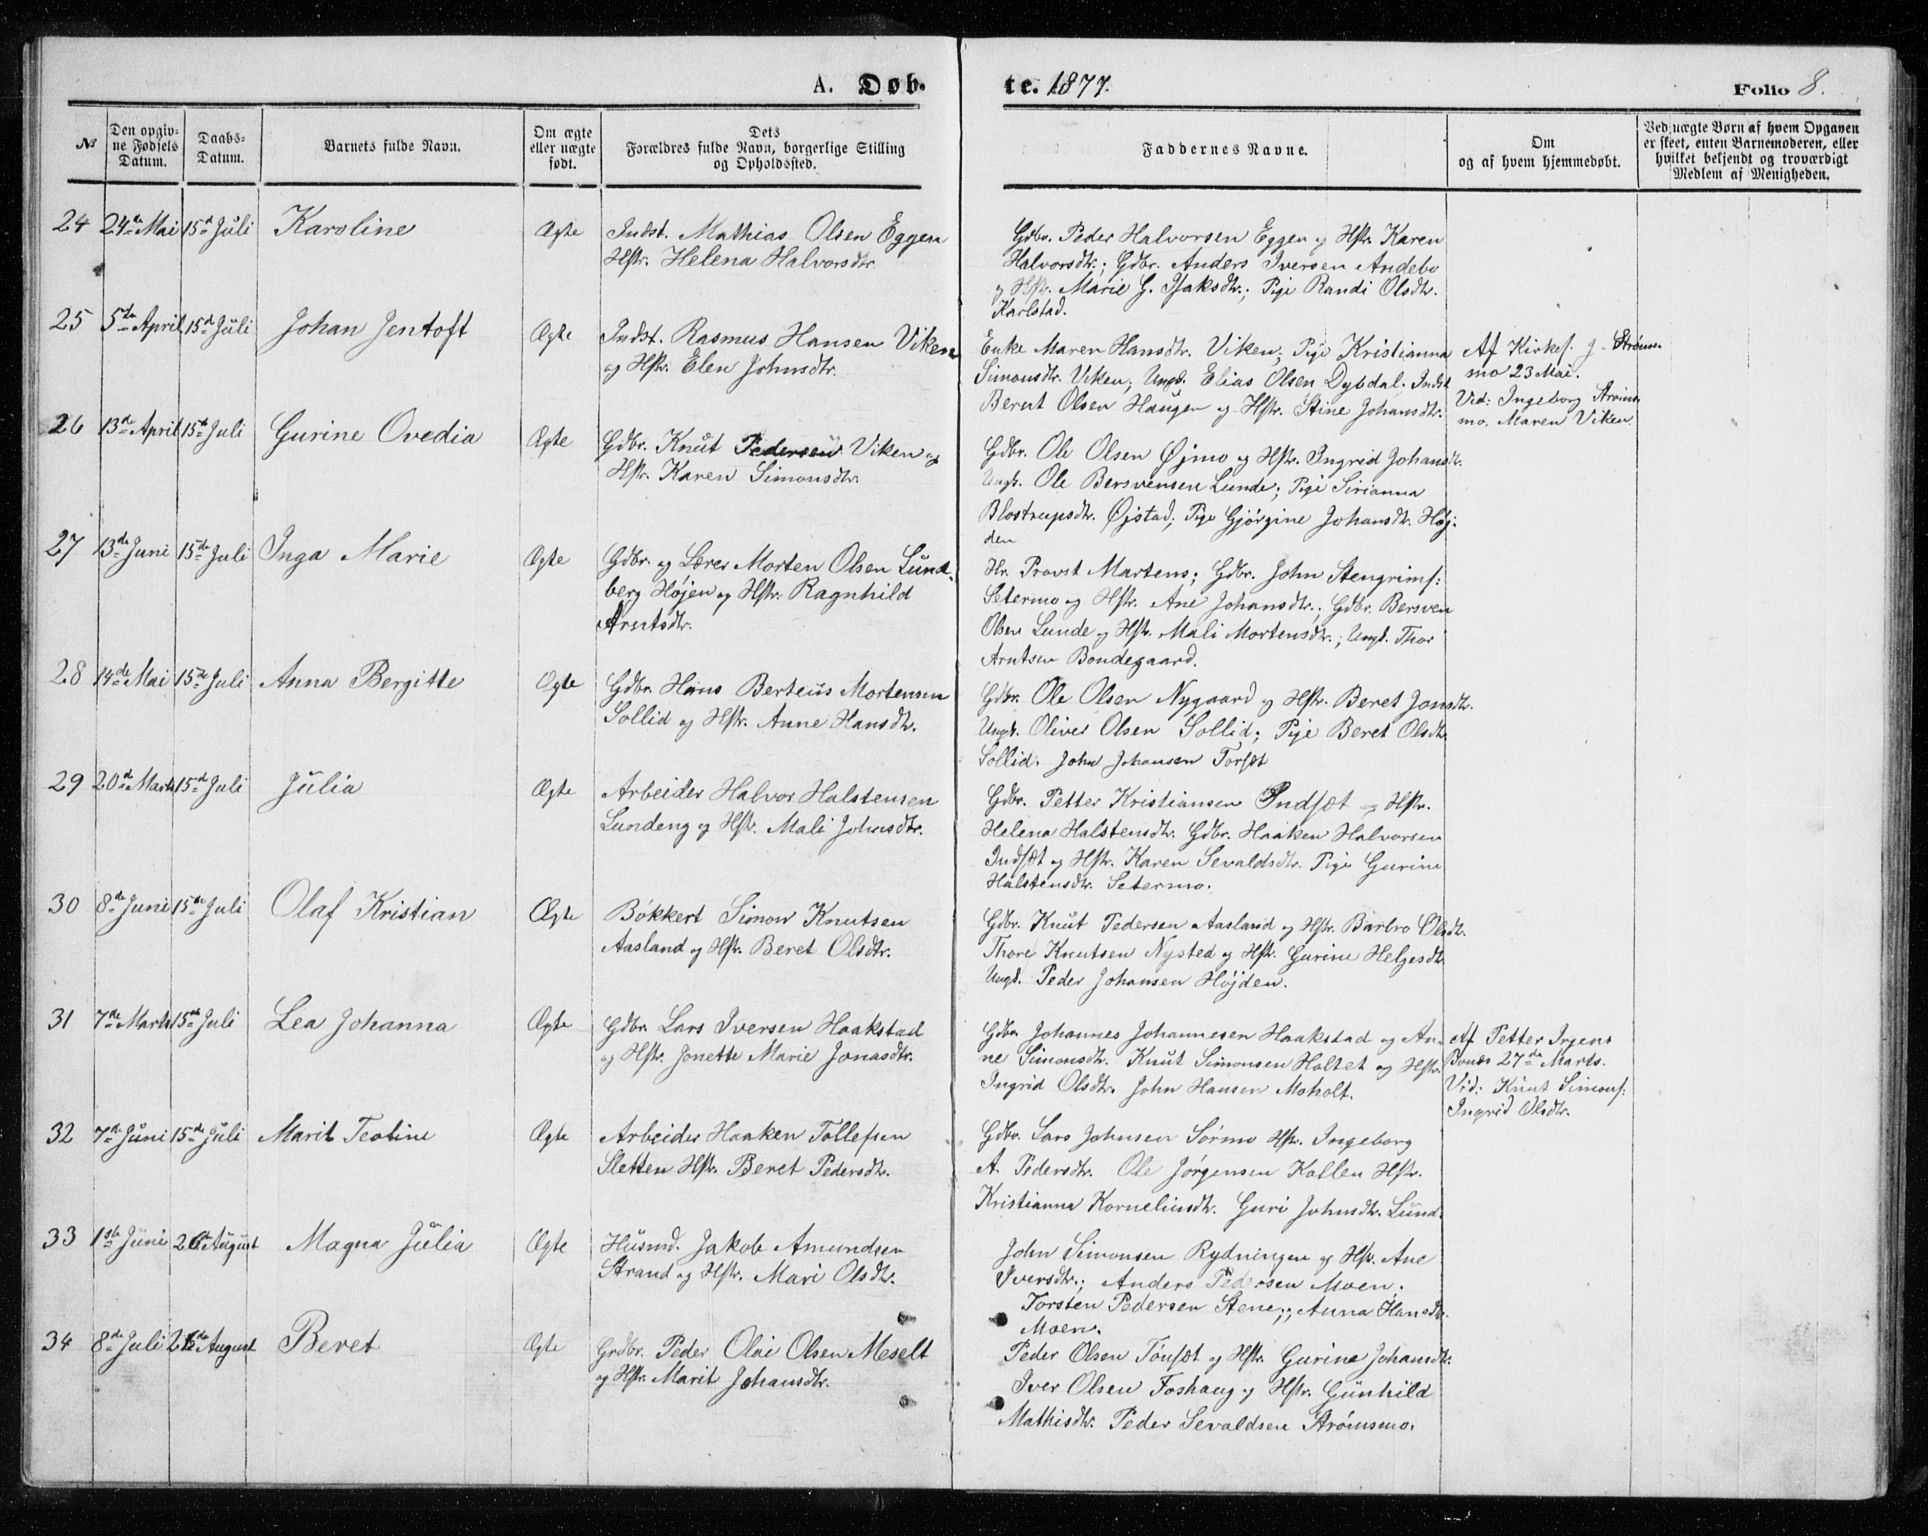 A. Døb-
te. 1877.
Folio 8.
№
Den opgiv-
ne Fødsels
Datum.
Daabs-
Datum.
Barnets fulde Navn.
Om ægte
eller uægte
født.
Dets
Forældres fulde Navn, borgerlige Stilling
og Opholdssted.
Faddernes Navne.
Om
og af hvem hjemmedøbt.
Ved uægte Børn af hvem Opgaven
er skeet, enten Barnemoderen, eller
hvilket bekjendt og troværdigt
Medlem af Menigheden.
24 24de Mai 15de Juli Karoline Ægte
Indst. Mathias Olsen Eggen
Hstr. Helena Halvorsdtr.
Gdbr. Peder Halvorsen Eggen og Hstr. Karen
Halvorsdtr.; Gdbr. Anders Iversen Andebo
og Hstr. Marie G. Isaksdtr.; Pige Randi Olsdtr.
Karlstad.
25 5te April 15de Juli Johan Jentoft Ægte
Indst. Rasmus Hansen Viken
og Hstr. Elen Johnsdtr.
Enke Maren Hansdtr. Viken; Pige Kristianna
Simonsdtr. Viken; Ungk. Elias Olsen Dybdal. Indst
Bernt Olsen Haugen og Hstr. Stine Johansdtr.
Af Kirkes. J. Strøms-
mo 23 Mai.
Vid: Ingeborg Strøms
mo, Maren Viken
26 13de April 15de Juli Gurine Ovedia Ægte
Gdbr. Knut Pedersen Viken og
Hstr. Karen Simonsdtr.
Gdbr. Ole Olsen Øjmo og Hstr. Ingrid Johansdtr.
Ungk. Ole Bersvensen Lunde; Pige Sirianna
Blostrupsdtr. Øjstad; Pige Gjørgine Johansdtr. Høj-
den
27 13de Juni 15de Juli Inga Marie Ægte
Gdbr. og Lærer Morten Olsen Lund-
berg Højen og Hstr. Ragnhild
Arntsdtr.
Hr. Provst Martens; Gdbr. John Stengrims:
Setermo og Hstr. Ane Johansdtr.; Gdbr. Bersven
Olsen Lunde og Hstr. Mali Mortensdtr.; Ungk. Thor
Arntsen Bondegaard.
28 14de Mai 15de Juli Anna Bergitte Ægte
Gdbr. Hans Berteus Mortensen
Sollid og Hstr. Anne Hansdtr.
Gdbr. Ole Olsen Nygaard og Hstr. Beret Jonsdtr.
Ungk. Oliver Olsen Sollid; Pige Beret Olsdtr.
Sollid. John Johansen Forsæt
29 20de Marts 15de Juli Julia Ægte
Arbeider Halvor Halstensen
Lundeng og Hstr. Mali Johnsdtr.
Gdbr. Petter Kristiansen Indsæt og Hstr.
Helena Halstensdtr. Gdbr. Haaken Halvorsen
Indsæt og Hstr. Karen Sevaldsdtr. Pige Gurine
Halstensdtr. Setermo.
30 8de Juni 15de Juli Olaf Kristian Ægte
Bøkkert Simon Knutsen
Aasland og Hstr. Beret Olsdtr.
Gdbr. Knut Pedersen Aasland og Hstr. Barbro Olsdt.
Thore Knutsen Nysted og Hstr. Gurine Helgesdtr.
Ungk. Peder Johansen Højden.
31 7de Marts 15de Juli Lea Johanna Ægte
Gdbr. Lars Iversen Haakstad
og Hstr. Jonette Marie Jonasdtr.
Gdbr. Johannes Johannesen Haakstad og An-
ne Simonsdtr. Knut Simonsen Holtet og Hstr.
Ingrid Olsdtr. John Hansen Moholt.
Af Petter Irgens
Bones 27de Marts.
Vid: Knut Simons:
Ingrid Olsdtr.
32 7de Juni 15de Juli Marit Teoline Ægte
Arbeider Haaken Tollefsen
Sletten Hstr. Beret Pedersdtr.
Gdbr. Lars Johnsen Sørmo Hstr. Ingeborg
A. Pedersdtr. Ole Jørgensen Kollen Hstr.
Kristianna Korneliusdtr. Guri Johnsdtr. Lund.
33 1ste Juni 26de August Magna Julia Ægte
Husmd. Jakob Amundsen
Strand og Hstr. Mari Olsdtr.
John Simonsen Rydningen og Hstr. Ane
Iversdtr.; Anders Pedersen Moen.
Torsten Pedersen Stene; Anna Hansdtr.
Moen.
34 8de Juli 26de August Beret Ægte
Grdbr. Peder Olai Olsen Meselt
og Hstr. Marit Johansdtr.
Peder Olsen Tønsæt og Hstr. Gurine Johansdtr.
Iver Olsen Foshaug og Hstr. Gunhild
Mathisdtr. Peder Sevaldsen Strømsmo.